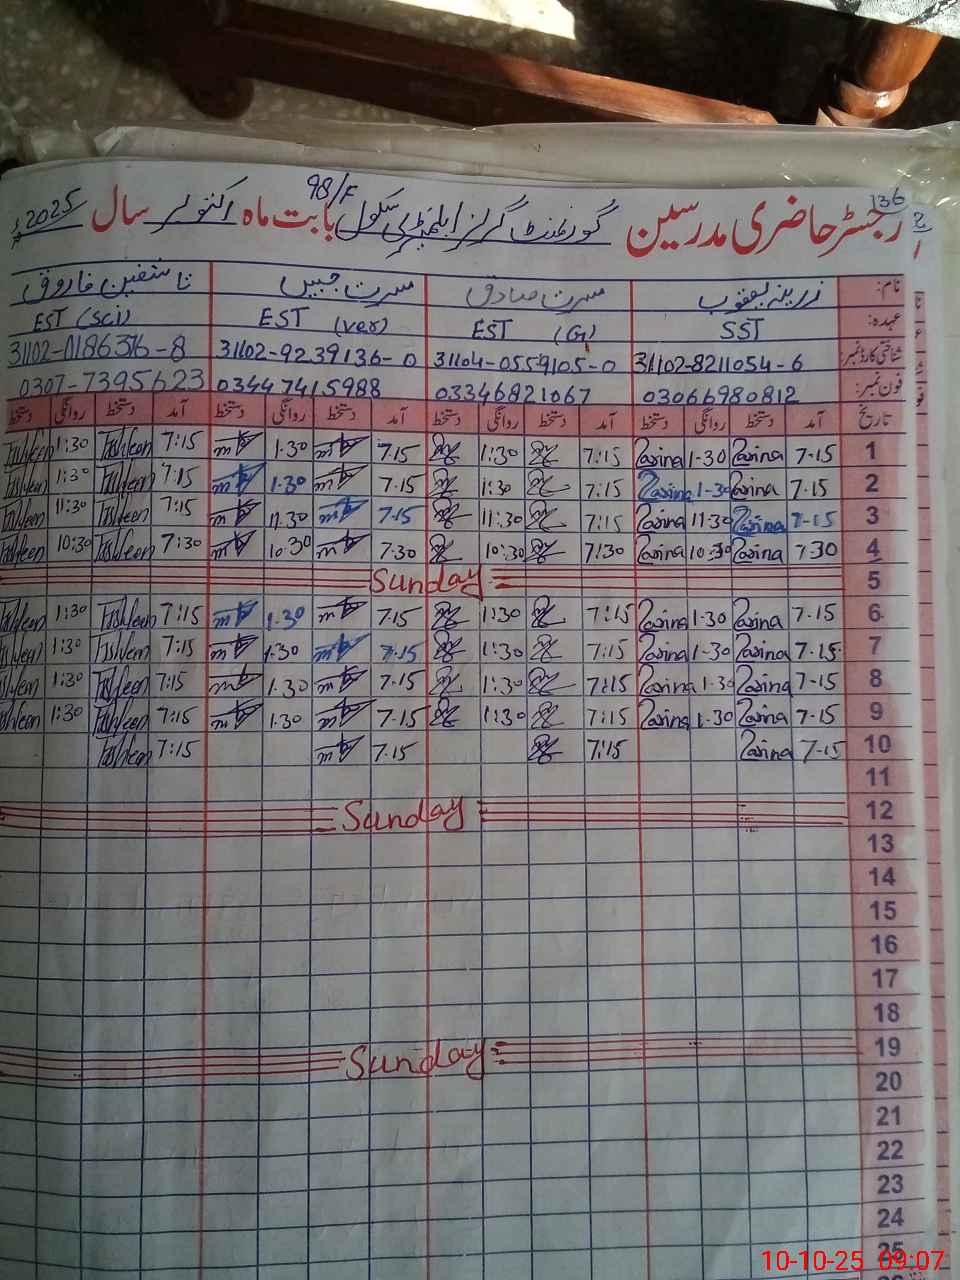 136
رجسٹر حاضری مدرسین گورنمنٹ گرلز ایلیمنٹری سکول 98/F بابت ماہ اکتوبر سال 2025ء
نام: زرینہ یعقوب مسرت صادق مسرت جبیں تاشفین فاروق
عہدہ: SST EST (G) EST (ver) EST (Sci)
شناختی کارڈ نمبر: 31102-8211054-6 31104-0559105-0 31102-9239136-0 31102-0186376-8
فون نمبر: 03066980812 03346821067 03447415988 0307-7395623
تاریخ آمد دستخط روانگی دستخط آمد دستخط روانگی دستخط آمد دستخط روانگی دستخط آمد دستخط روانگی دستخط
1 7-15 Zarina 1-30 Zarina 7:15 1:30 7.15 1.30 7:15 Tashfeen 1:30 Tashfeen
2 7-15 Zarina 1-30 Zarina 7:15 1:30 7.15 1.30 7:15 Tashfeen 1:30 Tashfeen
3 7-15 Zarina 11-30 Zarina 7:15 11:30 7-15 11.30 7:15 Tashfeen 11:30 Tashfeen
4 7.30 Zarina 10:30 Zarina 7:30 10:30 7.30 10.30 7:30 Tashfeen 10:30 Tashfeen
5 Sunday
6 7-15 Zarina 1-30 Zarina 7:15 1:30 7.15 1.30 7:15 Tashfeen 1:30 Tashfeen
7 7-15 Zarina 1-30 Zarina 7:15 1:30 7.15 1.30 7:15 Tashfeen 1:30 Tashfeen
8 7-15 Zarina 1-30 Zarina 7:15 1:30 7.15 1.30 7:15 Tashfeen 1:30 Tashfeen
9 7-15 Zarina 1-30 Zarina 7:15 1:30 7.15 1.30 7:15 Tashfeen 1:30 Tashfeen
10 7-15 Zarina 7:15 7.15 7:15 Tashfeen
11
12 Sunday
13
14
15
16
17
18
19 Sunday
20
21
22
23
24
25
10-10-25 09:07